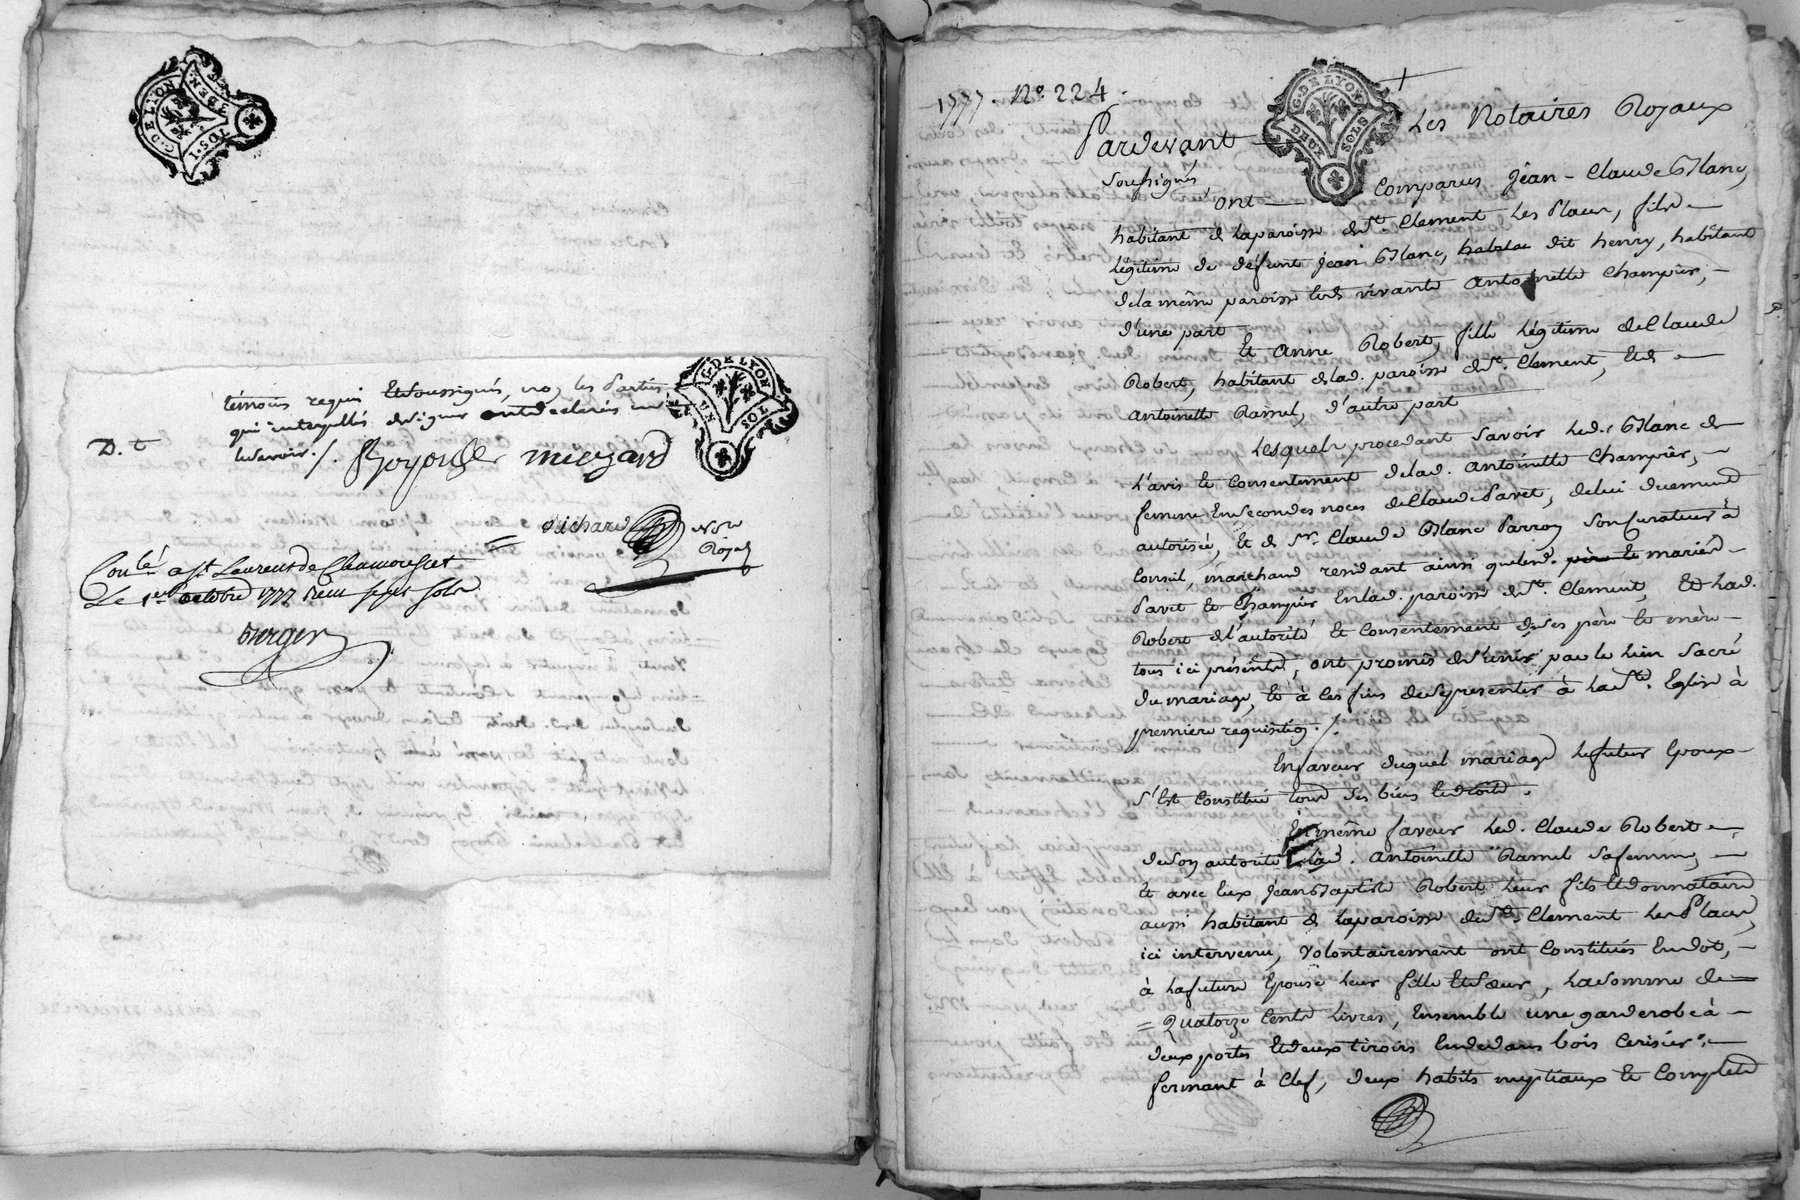 G. DE LYON
3 DEN.
1 SOL
témoins requis et soussignés, non les parties
qui interpellés de signer ont déclarés ne
le savoir ./.
D. t
G. DE LYON
UN SOL
Richard Nore
Royal
Conlé a St Laurent de Chamousset
Le 1er octobre 1777 Reçu sept sols
Berger
1777. No. 224.
G. DE LYON
DEUX SOLS
Pardevant Les Notaires Royaux
soussignés
ont comparus Jean-Claude Blanc,
habitant de la paroisse de St. Clement Les Places, fils
légitime de défunt Jean Blanc, dit henry, habitant
de la même paroisse et de vivante Antoinette Champier,
d'une part
Et Anne Robert, fille légitime de Claude
Robert, habitant de lad. paroisse de St. Clement, et de
Antoinette Ramel, d'autre part
Lesquels procedant savoir led. Blanc de
l'avis et consentement de lad. Antoinette Champier,
femme en secondes noces de Claude Pavet, de lui duement
autorisée, et de Sr. Claude Blanc Parron son curateur à
conseil, marchand residant ainsi que lesd. mariés
Pavet et Champier en lad. paroisse de St. Clement, et lad.
Robert de l'autorité et consentement de ses père et mère
tous ici présents, ont promis de s'unir par le lien sacré
du mariage, et à ces fins de se presenter à la Ste. Eglise à
premiere requisition ./.
En faveur duquel mariage le futur Epoux
s'est constitué tous ses biens et droits.
En même faveur led. Claude Robert
de son autorité lad. Antoinette Ramel sa femme,
et avec eux Jean Baptiste Robert leur fils et donnataire
aussi habitant de la paroisse de St. Clement Les Places,
ici intervenu, volontairement ont constitués en dot,
à la future Epouse leur fille et sœur, la somme de
= Quatorze cents livres, Ensemble une garderobe à
deux portes et deux tiroirs en dedans bois cerisier
fermant à clef, deux habits nuptiaux et complets